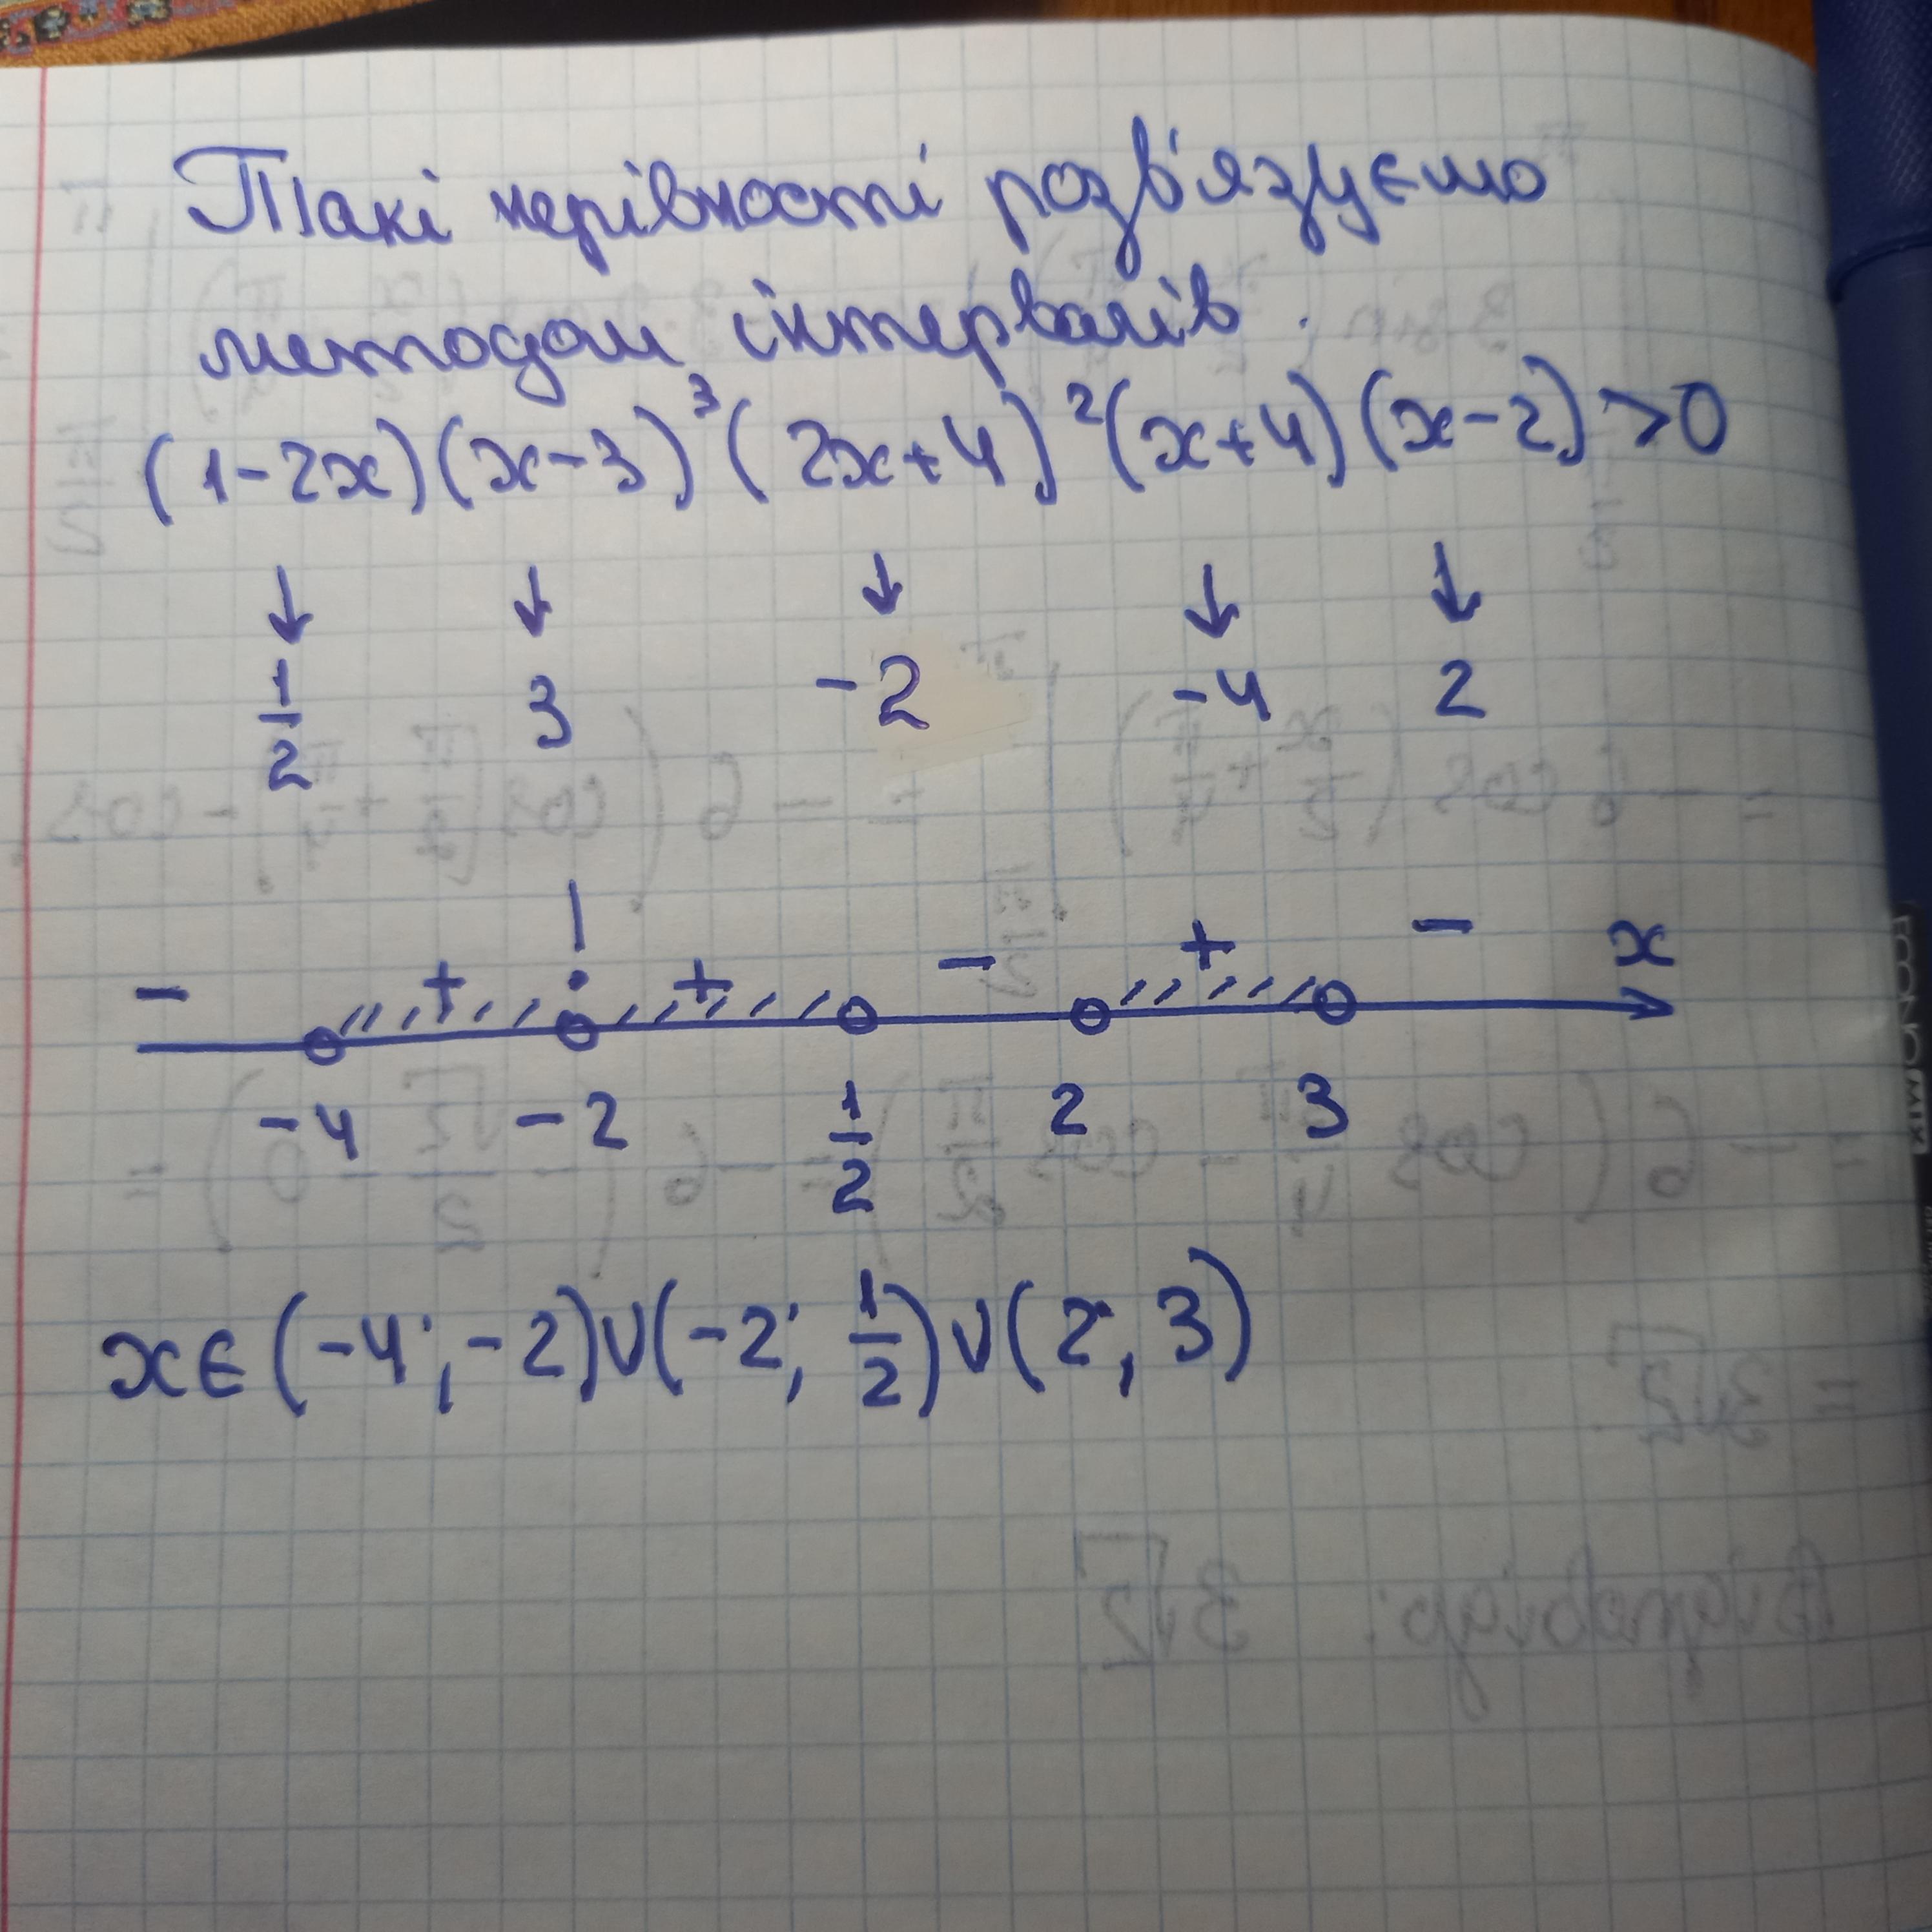 Такі нерівності розв'язуємо
методом інтервалів.
(1-2x)(x-3)³(2x+4)²(x+4)(x-2)>0
↓ ↓ ↓ ↓ ↓
1/2 3 -2 -4 2
!
- + + - + - x
-4 -2 1/2 2 3
x∈(-4;-2)∪(-2;1/2)∪(2;3)